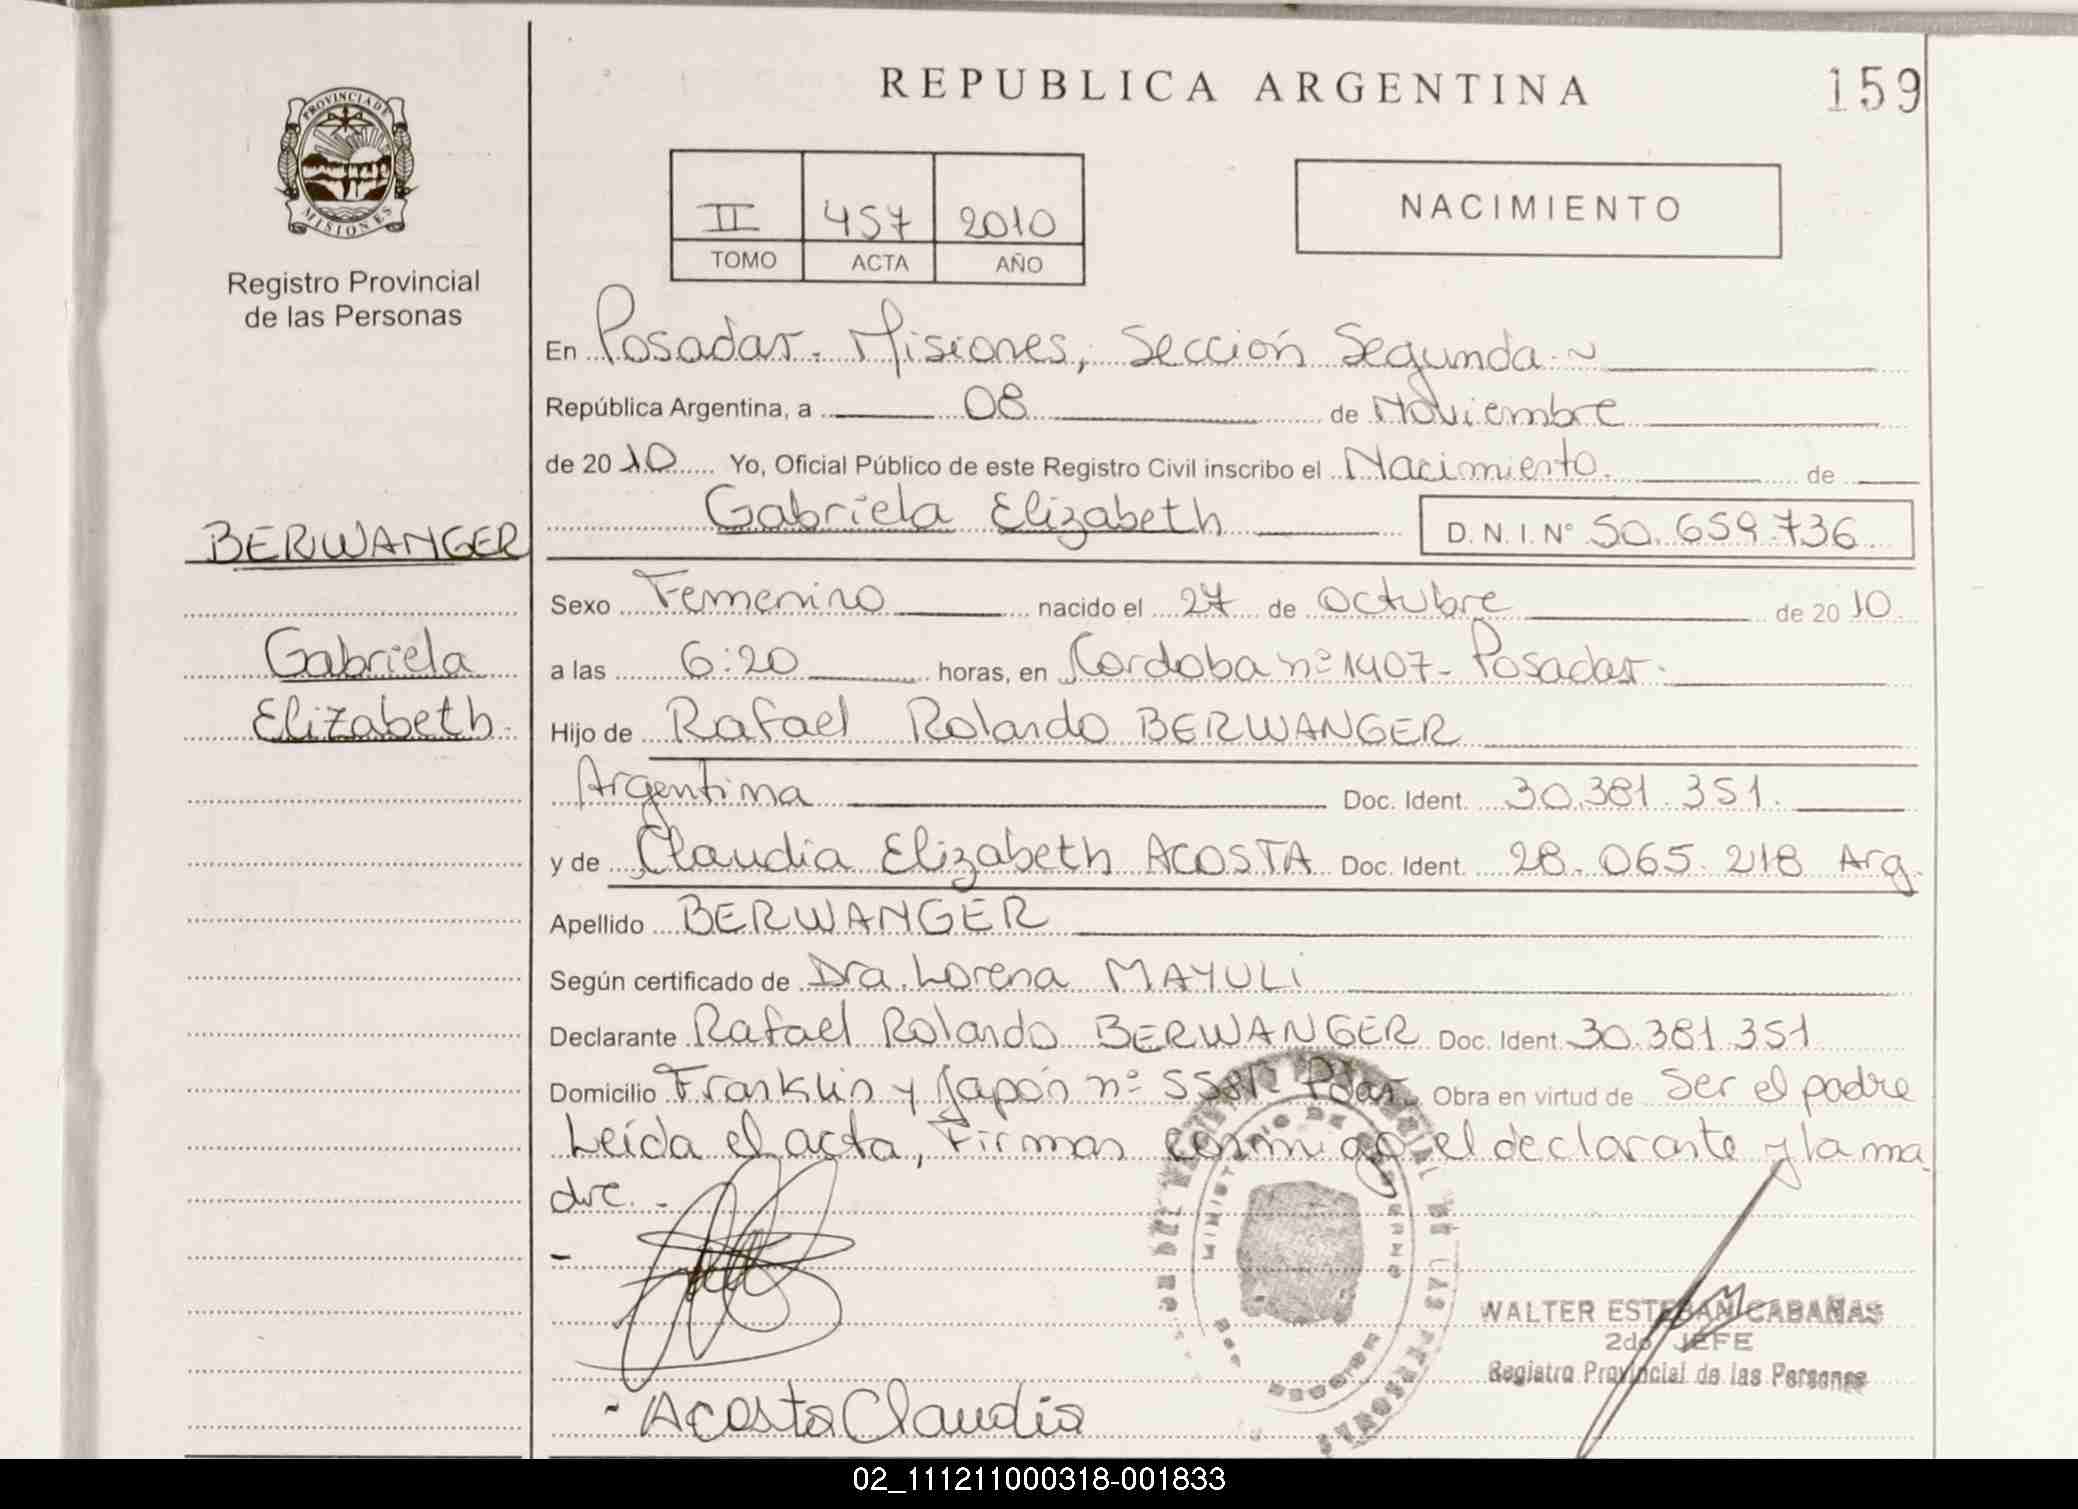 REPUBLICA ARGENTINA
159
PROVINCIA DE MISIONES
Registro Provincial
de las Personas
II 457 2010
TOMO ACTA AÑO
NACIMIENTO
En Posadas. Misiones, Sección Segunda.~
República Argentina, a 08 de Noviembre
de 2010 Yo, Oficial Público de este Registro Civil inscribo el Nacimiento. de
Gabriela Elizabeth D.N.I. N° 50.659.736
BERWANGER
Gabriela
Elizabeth.
Sexo Femenino nacido el 27 de Octubre de 2010
a las 6:20 horas, en Cordoba nº 1407- Posadas.
Hijo de Rafael Rolando BERWANGER
Argentina Doc. Ident. 30.381.351.
y de Claudia Elizabeth ACOSTA Doc. Ident. 28.065.218 Arg.
Apellido BERWANGER
Según certificado de Dra. Lorena MAYULI
Declarante Rafael Rolando BERWANGER Doc. Ident. 30.381.351
Domicilio Franklin y Japón nº Pdas. Obra en virtud de Ser el padre
Leída el acta, Firman conmigo el declarante y la ma
dre.-
- Acosta Claudia
WALTER ESTEBAN CABAÑAS
2do JEFE
Registro Provincial de las Personas
02_111211000318-001833